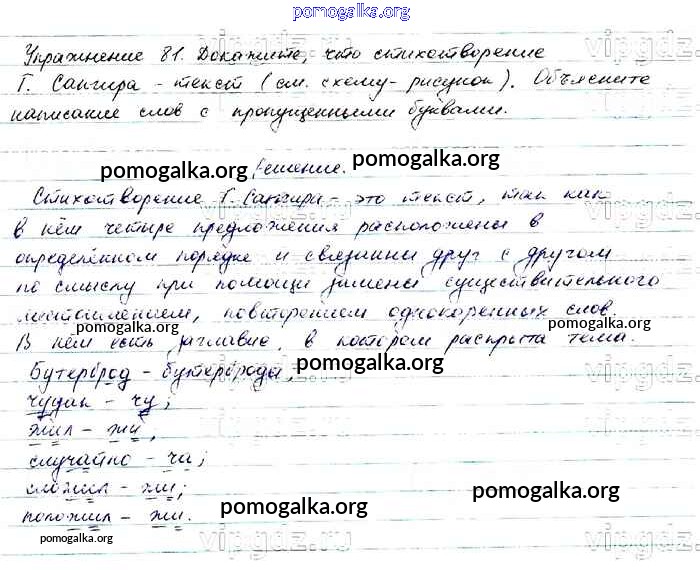 pomogalka.org
Упражнение 81. Докажите, что стихотворение
Г. Сапгира - текст (см. схему- рисунок). Объясните
написание слов с пропущенными буквами.
pomogalka.org ешение. pomogalka.org
Стихотворение Г. Сапгира - это текст, так как
в нём четыре предложения расположены в
определённом порядке и связанны друг с другом
по смыслу при помощи замены существительного
местоимением, повторением однокоренных слов.
pomogalka.org pomogalka.org
В нём есть заглавие, в котором раскрыта тема.
Бутерброд - бутерброды, pomogalka.org
чудак - чу;
жил - жи;
случайно - ча;
сложил - жи; pomogalka.org
положил - жи. pomogalka.org
pomogalka.org
vipgdz.ru